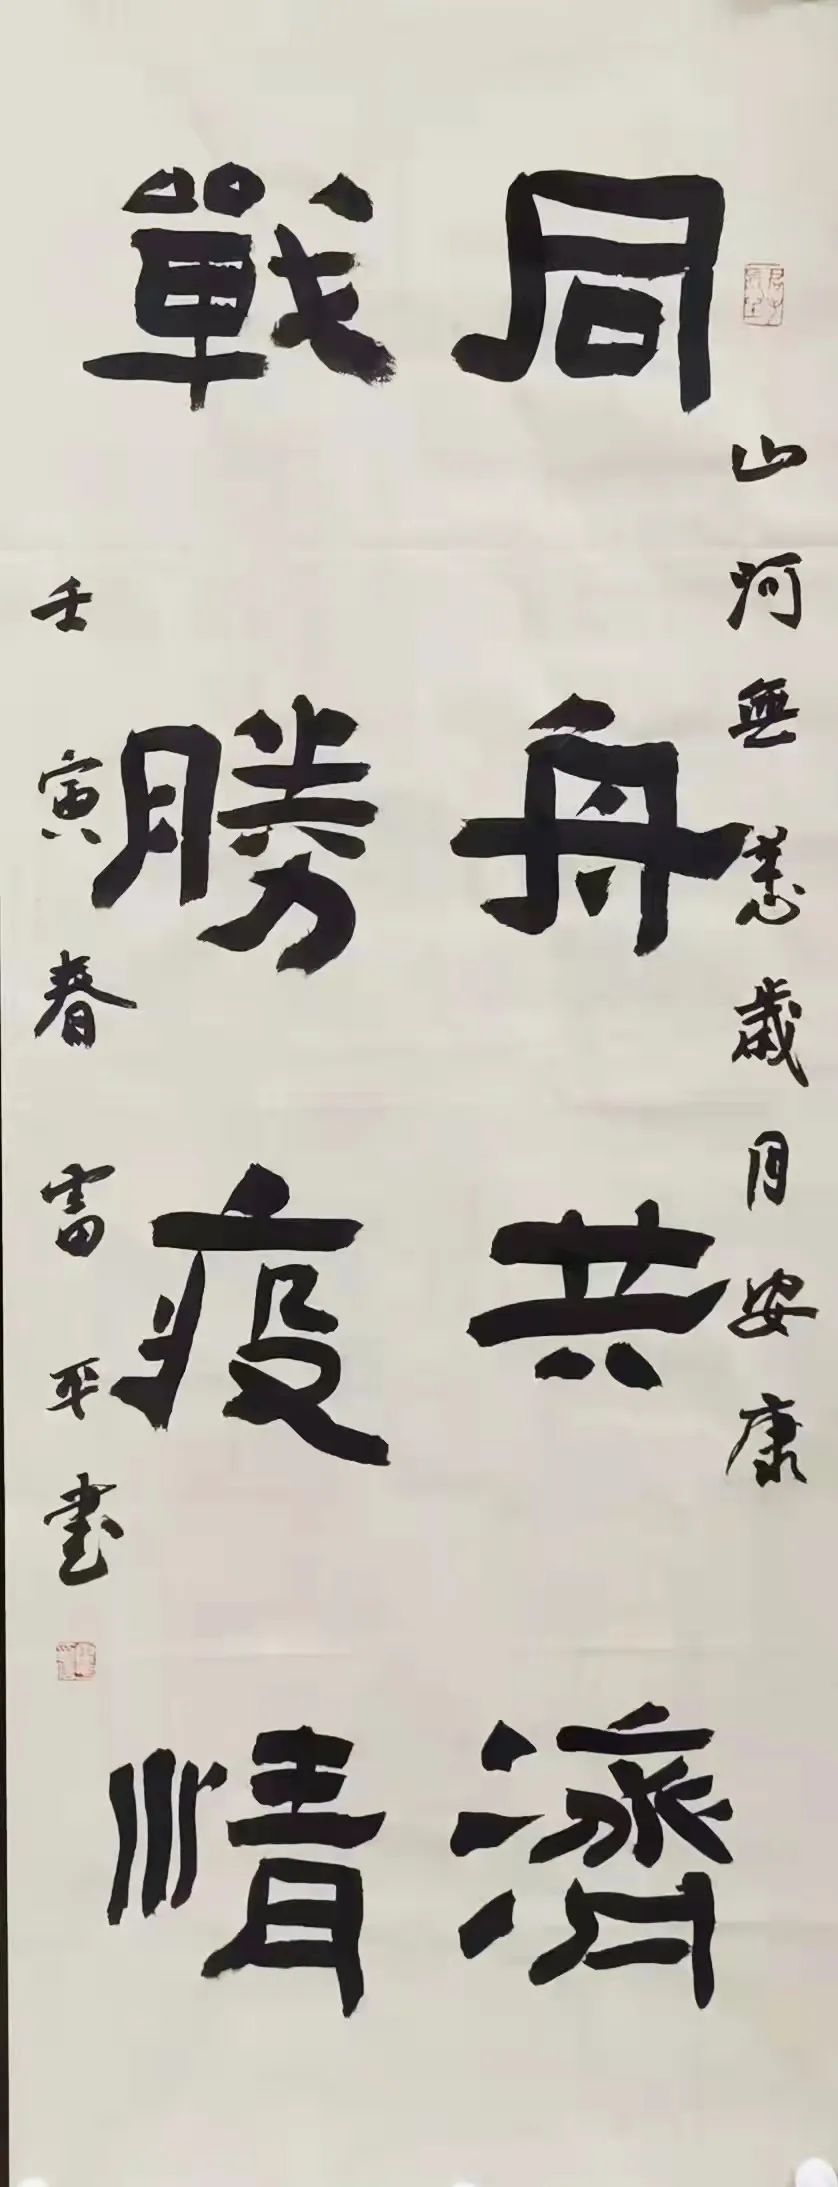 山河無恙歲月安康
同舟共濟
戰勝疫情
壬寅春富平書